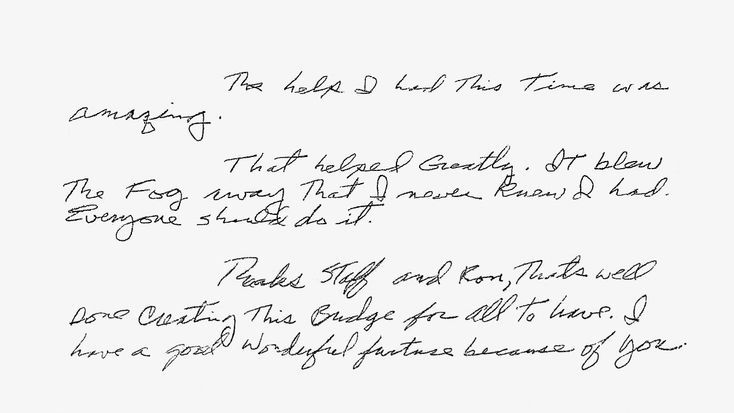 The help I had This Time was
amazing.
That helped Greatly. IT blew
The Fog away That I never knew I had.
Everyone should do it.
Thanks Staff and Ron, Thats well
Done Creating This Bridge for all To have. I
have a good Wonderful furture because of you.